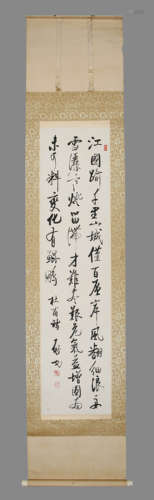 江國踰千里山城僅百層岸風翻夕浪舟
雪灑寒燈留滯才難盡艱危氣益增圖南
未可料變化有鯤鵬 杜甫詩 啟功